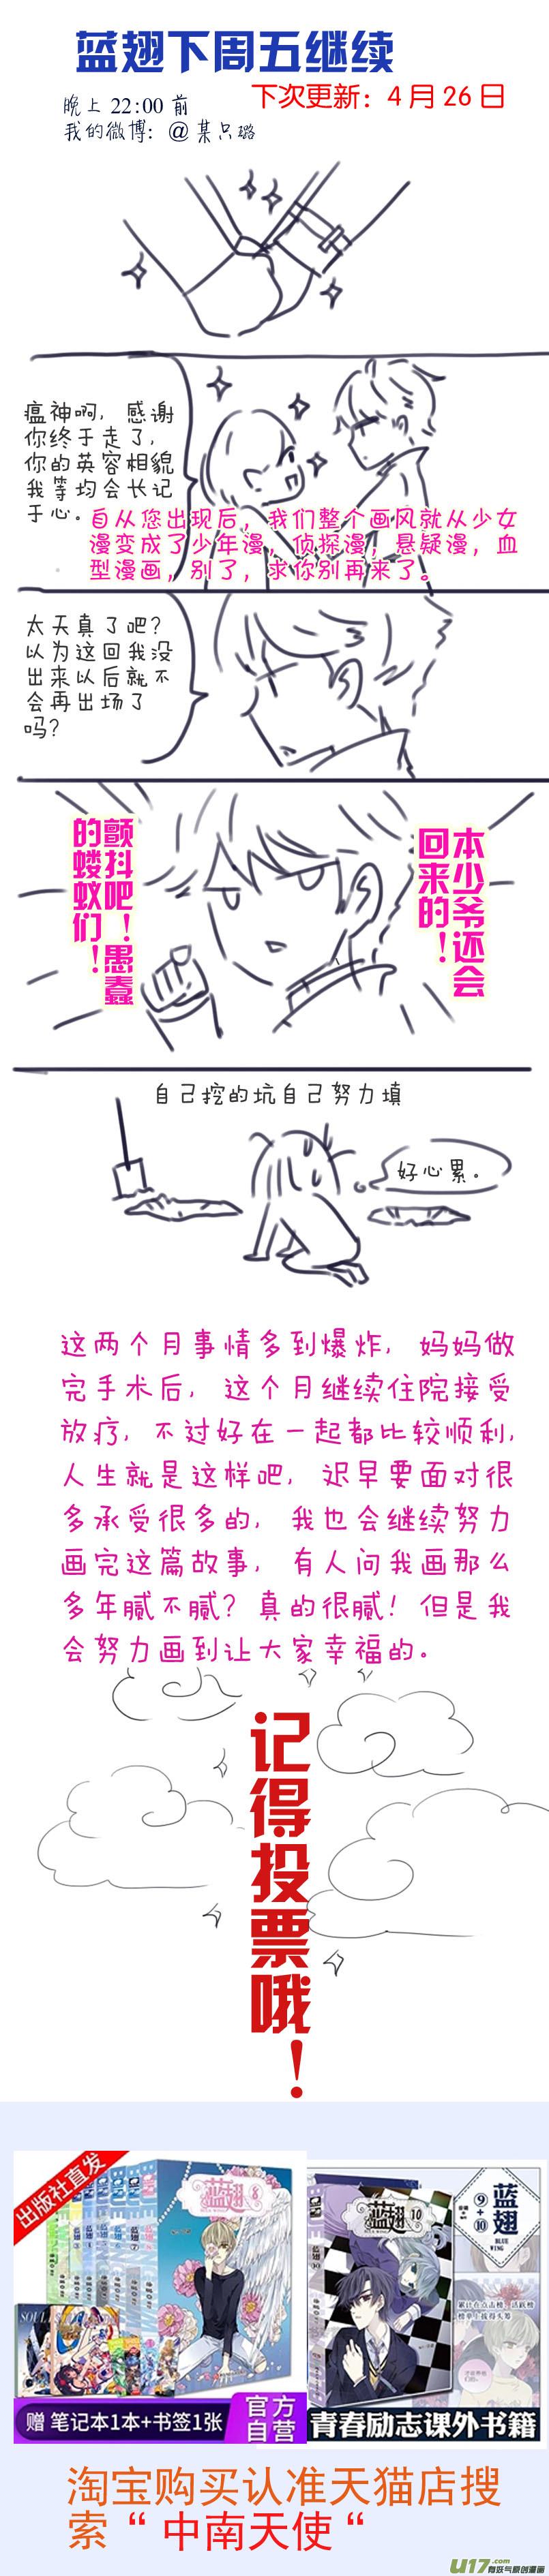 蓝翅下周五继续
下次更新：4月26日
晚上 22:00 前
我的微博：@某只璐
瘟神啊，感谢
你终于走了，
你的英容相貌
我等均会长记
于心。
自从您出现后，我们整个画风就从少女
漫变成了少年漫，侦探漫，悬疑漫，血
型漫画，别了，求你别再来了。
太天真了吧？
以为这回我没
出来以后就不
会再出场了
吗？
本少爷还会
回来的！
颤抖吧！愚蠢
的蝼蚁们！
自己挖的坑自己努力填
好心累。
这两个月事情多到爆炸，妈妈做
完手术后，这个月继续住院接受
放疗，不过好在一起都比较顺利，
人生就是这样吧，迟早要面对很
多承受很多的，我也会继续努力
画完这篇故事，有人问我画那么
多年腻不腻？真的很腻！但是我
会努力画到让大家幸福的。
记得投票哦！
出版社直发
蓝翅 8
赠 笔记本1本+书签1张
官方
自营
蓝翅 10
⑨+⑩
蓝翅
BLUE
WING
青春励志课外书籍
淘宝购买认准天猫店搜
索“中南天使“
U17.com
有妖气原创漫画